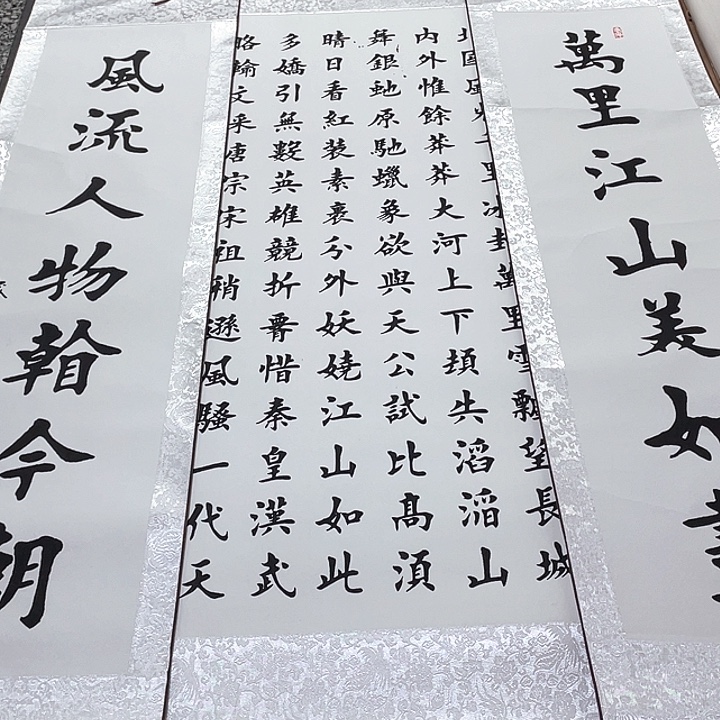 萬里江山美如畫
北国風光千里冰封萬里雪飄望長城
内外惟餘莽莽大河上下頓失滔滔山
舞銀虵原馳蠟象欲與天公試比髙須
晴日看紅装素裹分外妖嬈江山如此
多嬌引無數英雄競折腰惜秦皇漢武
略輸文采唐宗宋祖稍遜風騷一代天
風流人物看今朝